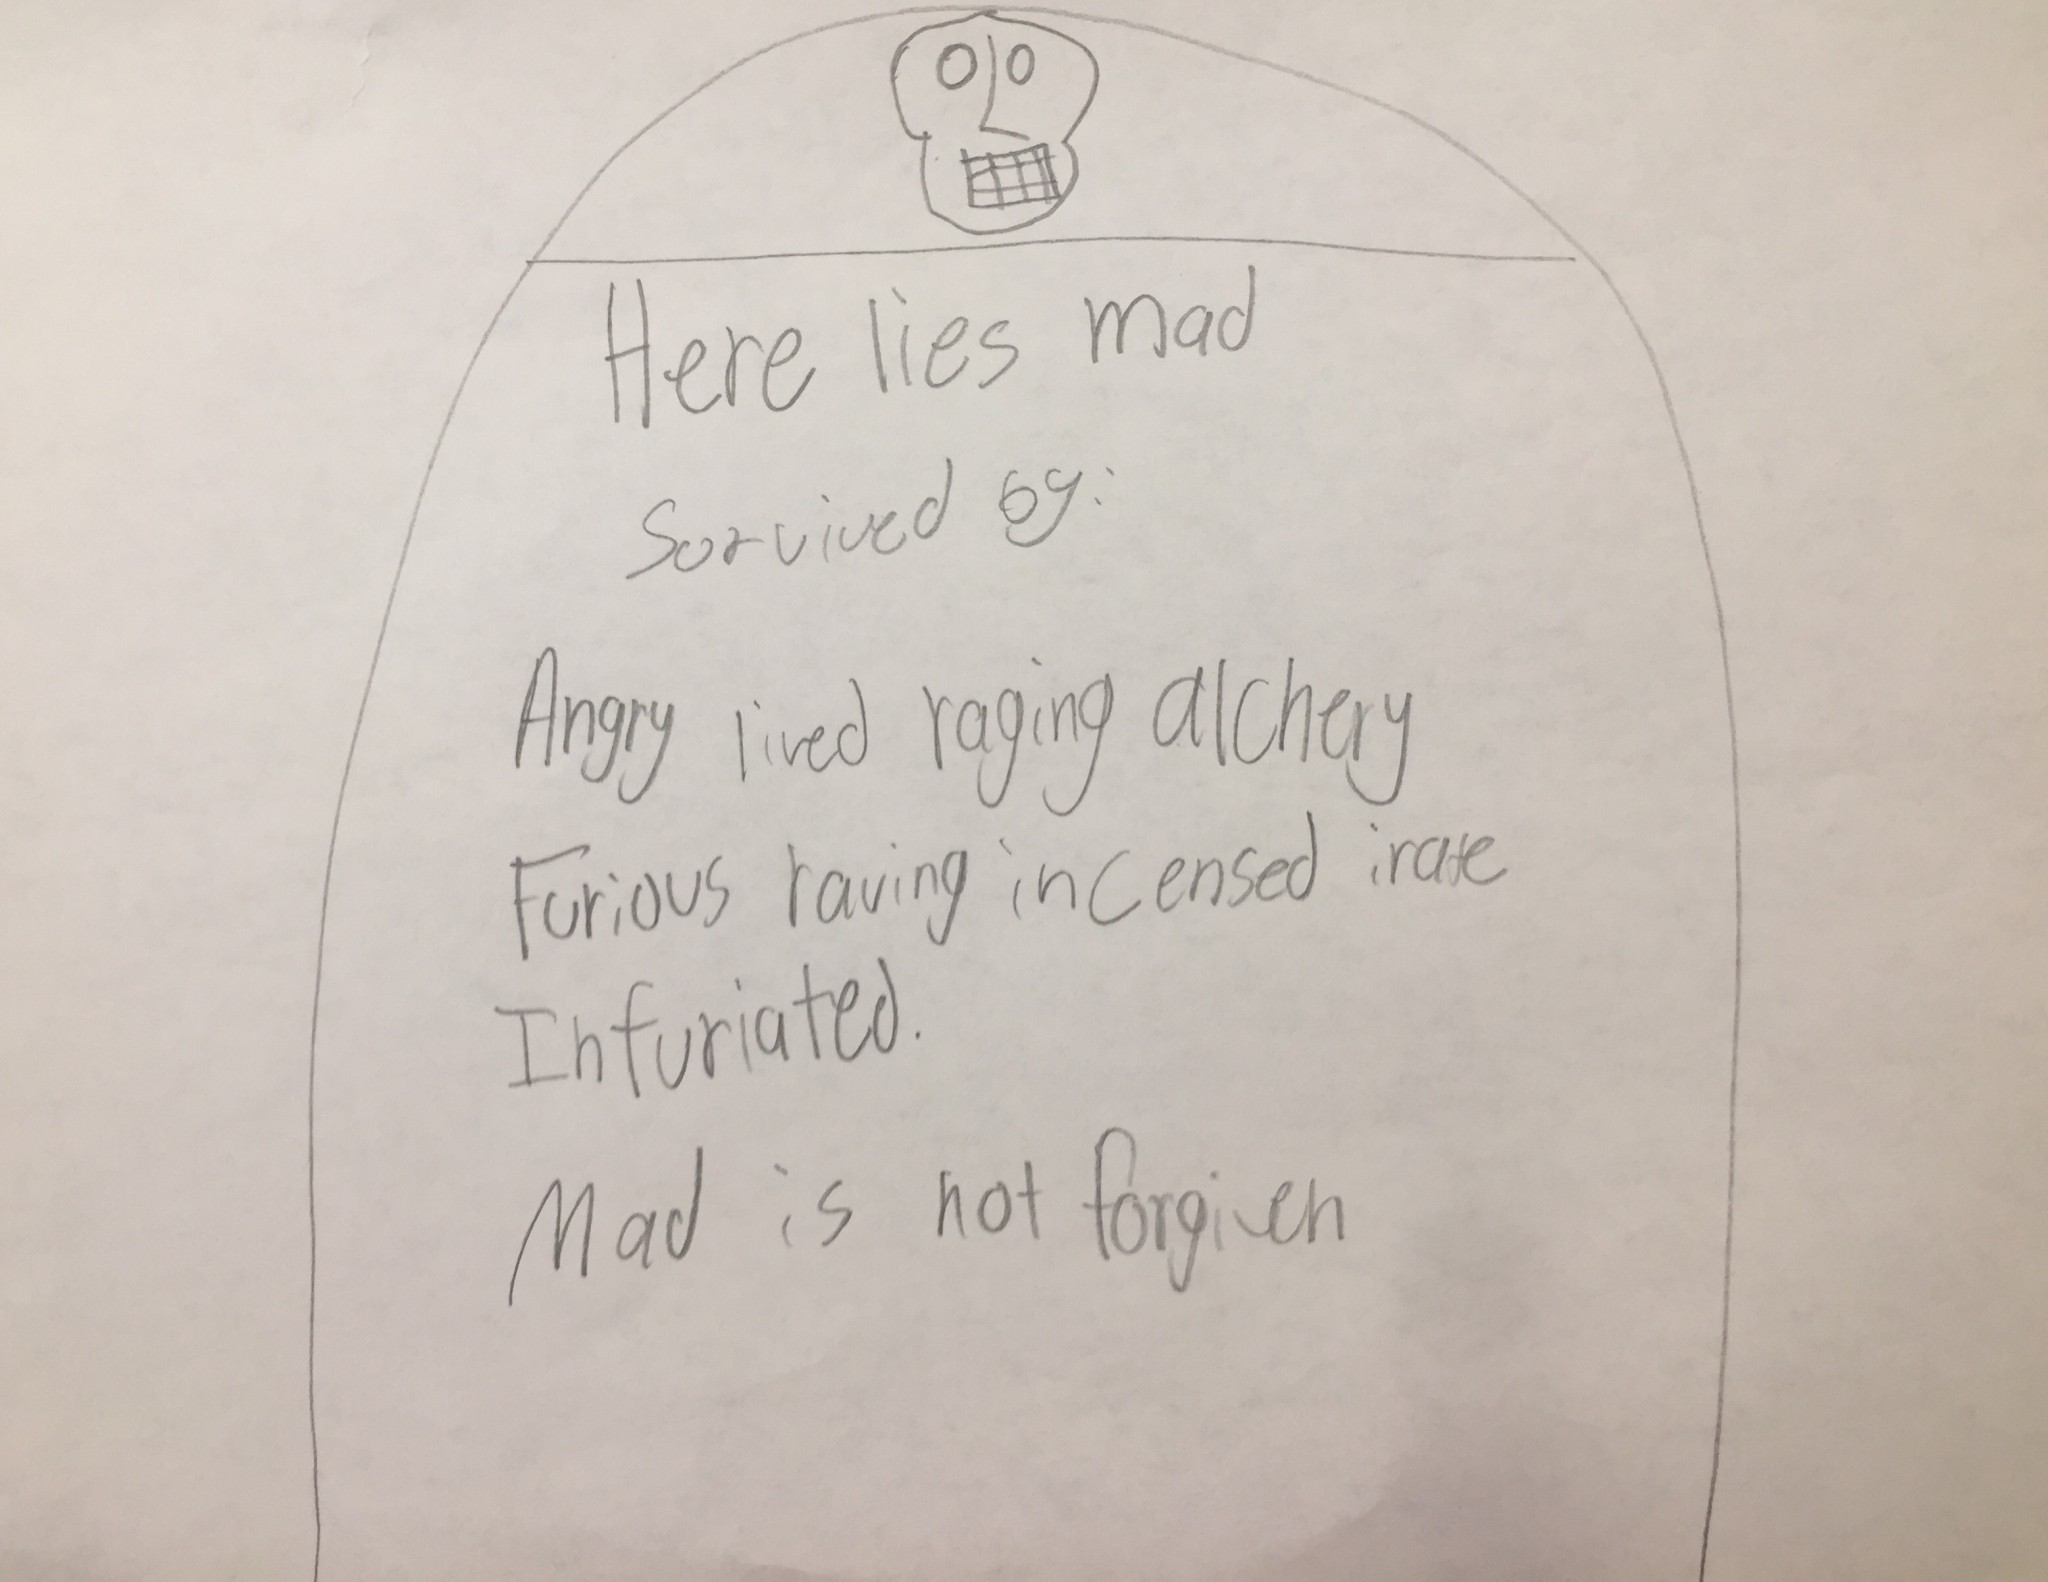 Here lies mad
Sorvived by:
Angry lived raging alchery
Furious raving incensed irate
Infuriated.
Mad is not forgiven